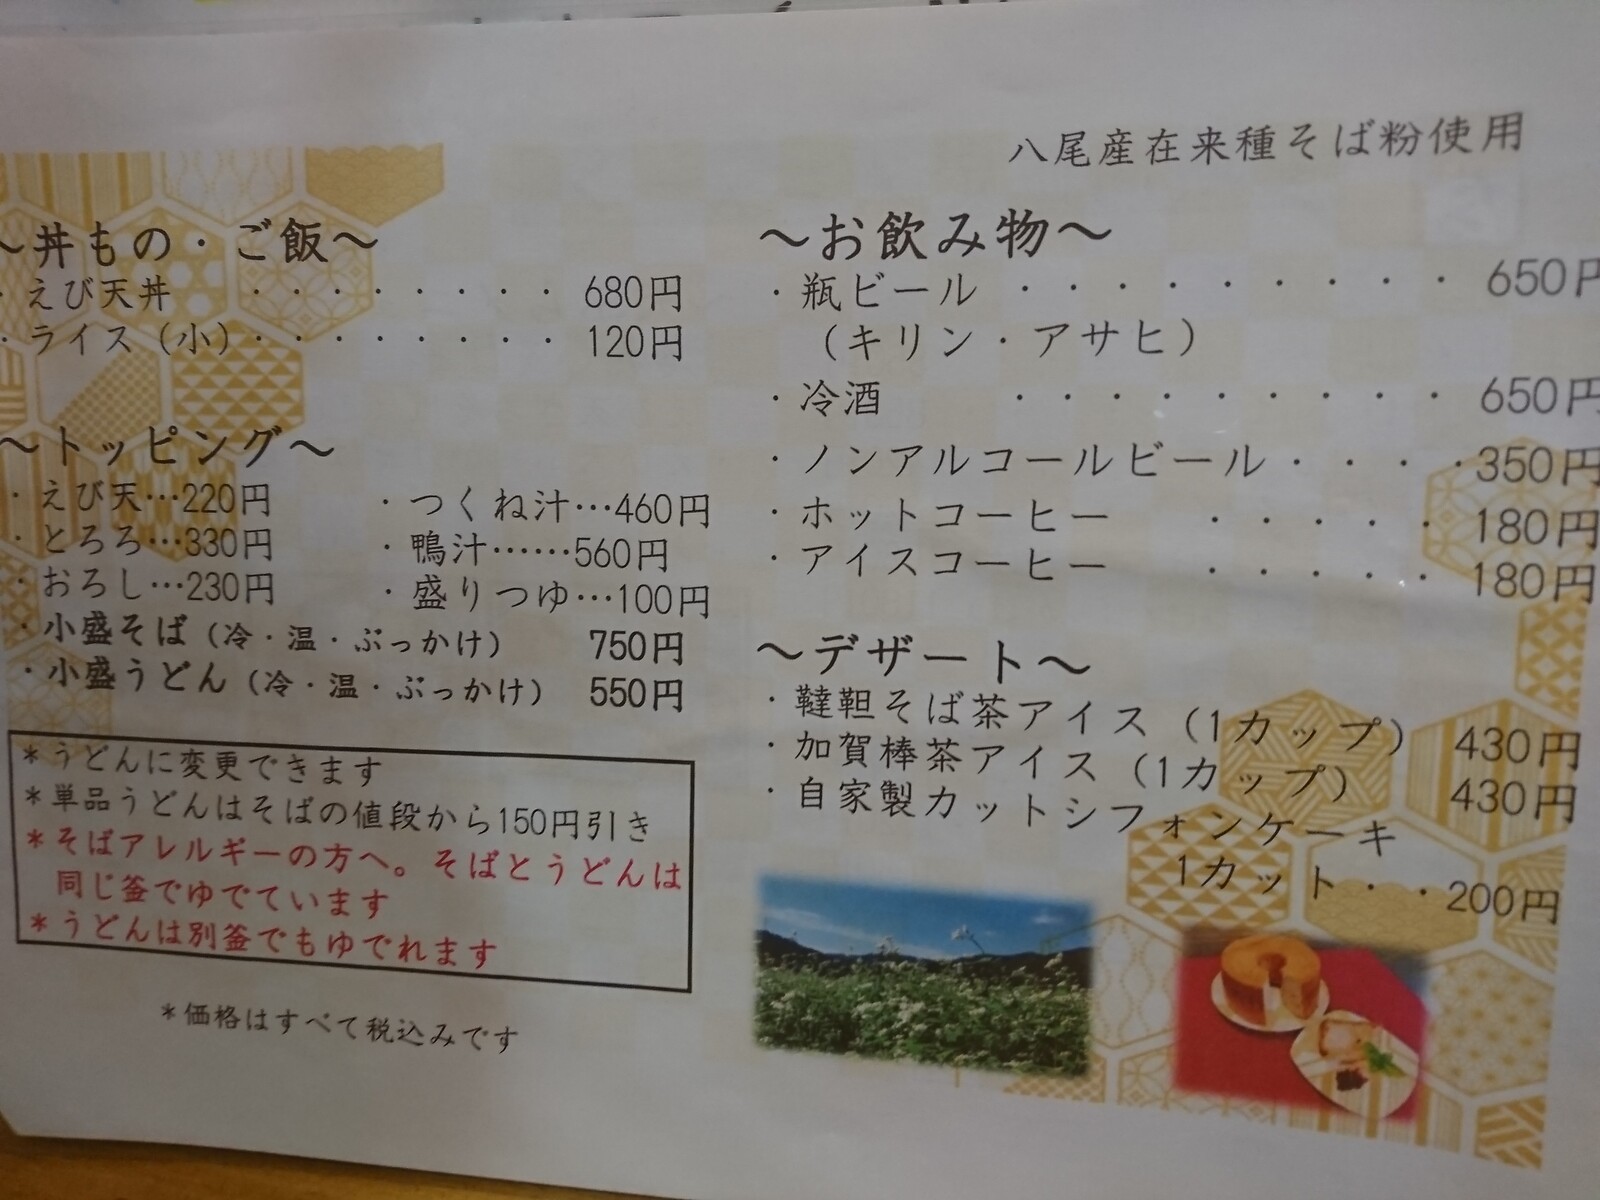 八尾産在来種そば粉使用
～丼もの・ご飯～
・えび天丼 ・・・・・・・・ 680円
・ライス（小）・・・・・・・・ 120円
～トッピング～
・えび天…220円
・とろろ…330円
・おろし…230円
・つくね汁…460円
・鴨汁……560円
・盛りつゆ…100円
・小盛そば（冷・温・ぶっかけ） 750円
・小盛うどん（冷・温・ぶっかけ） 550円
＊うどんに変更できます
＊単品うどんはそばの値段から150円引き
＊そばアレルギーの方へ。そばとうどんは
同じ釜でゆでています
＊うどんは別釜でもゆでれます
＊価格はすべて税込みです
～お飲み物～
・瓶ビール ・・・・・・・・・・ 650円
（キリン・アサヒ）
・冷酒 ・・・・・・・・・・ 650円
・ノンアルコールビール・・・・350円
・ホットコーヒー ・・・・・180円
・アイスコーヒー ・・・・・180円
～デザート～
・韃靼そば茶アイス（1カップ） 430円
・加賀棒茶アイス（1カップ） 430円
・自家製カットシフォンケーキ
1カット・・200円